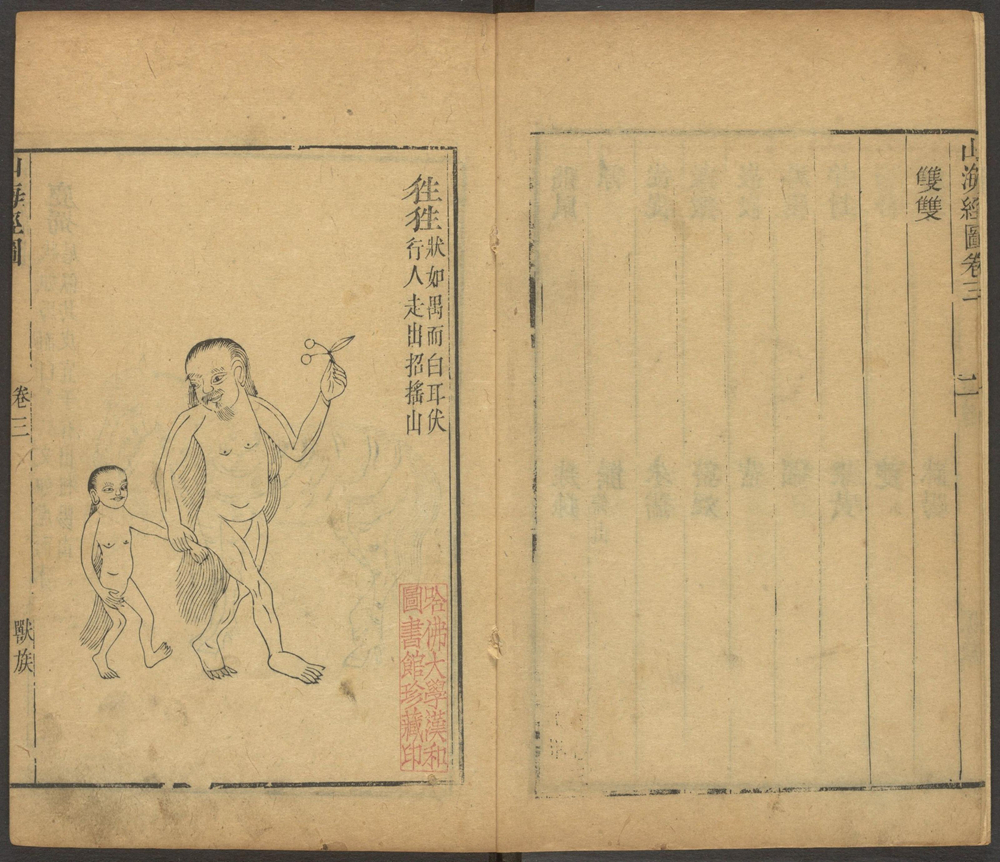 山海經圖卷三
二
雙雙
狌狌
狀如禺而白耳伏
行人走出招搖山
哈佛大學漢和
圖書館珍藏印
山海經圖
卷三
獸族